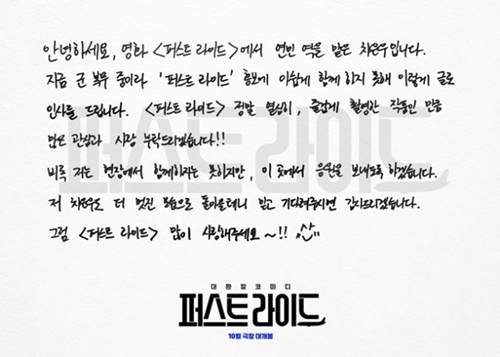 안녕하세요, 영화 <퍼스트 라이드>에서 연민 역을 맡은 차은우입니다.
지금 군 복무 중이라 '퍼스트 라이드' 홍보에 아쉽게 함께 하지 못해 이렇게 글로
인사를 드립니다. <퍼스트 라이드> 정말 열심히, 즐겁게 촬영한 작품인 만큼
많은 관심과 사랑 부탁드리겠습니다!!
비록 저는 현장에서 함께하지는 못하지만, 이 곳에서 응원을 보내도록 하겠습니다.
저 차은우도 더 멋진 모습으로 돌아올테니 믿고 기다려주시면 감사드리겠습니다.
그럼 <퍼스트 라이드> 많이 사랑해주세요 ~!!
퍼스트 라이드
대환장코미디
퍼스트 라이드
10월 극장 대개봉